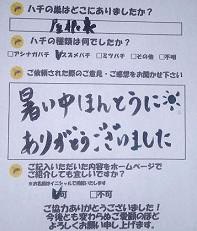 ハチの巣はどこにありましたか?
ハチの種類は何でしたか?
□アシナガバチ ☑スズメバチ □ミツバチ □その他 □不明
ご依頼された際のご意見・ご感想をお聞かせ下さい
暑い中ほんとうに
ありがとうございました
ご記入いただいた内容をホームページで
ご紹介しても宜しいですか?
※お名前はイニシャルで掲載いたします
☑可 □不可
ご協力ありがとうございました!
今後とも変わらぬご愛顧のほど
よろしくお願い申し上げます。